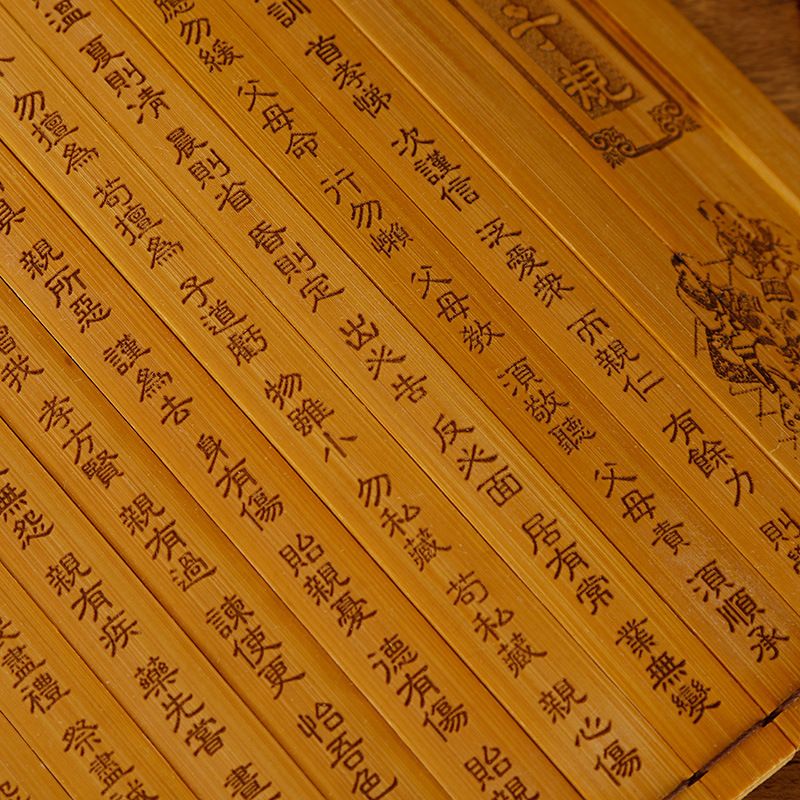 子規
訓 首孝悌 次謹信 泛愛衆 而親仁 有餘力 則
應勿緩 父母命 行勿懶 父母教 須敬聽 父母責 須順承
溫 夏則清 晨則省 昏則定 出必告 反必面 居有常 業無變
勿擅為 苟擅為 子道虧 物雖小 勿私藏 苟私藏 親心傷
具 親所惡 謹為去 身有傷 貽親憂 德有傷 貽親
憎我 孝方賢 親有過 諫使更 怡吾色
無怨 親有疾 藥先嘗 晝
盡禮 祭盡誠